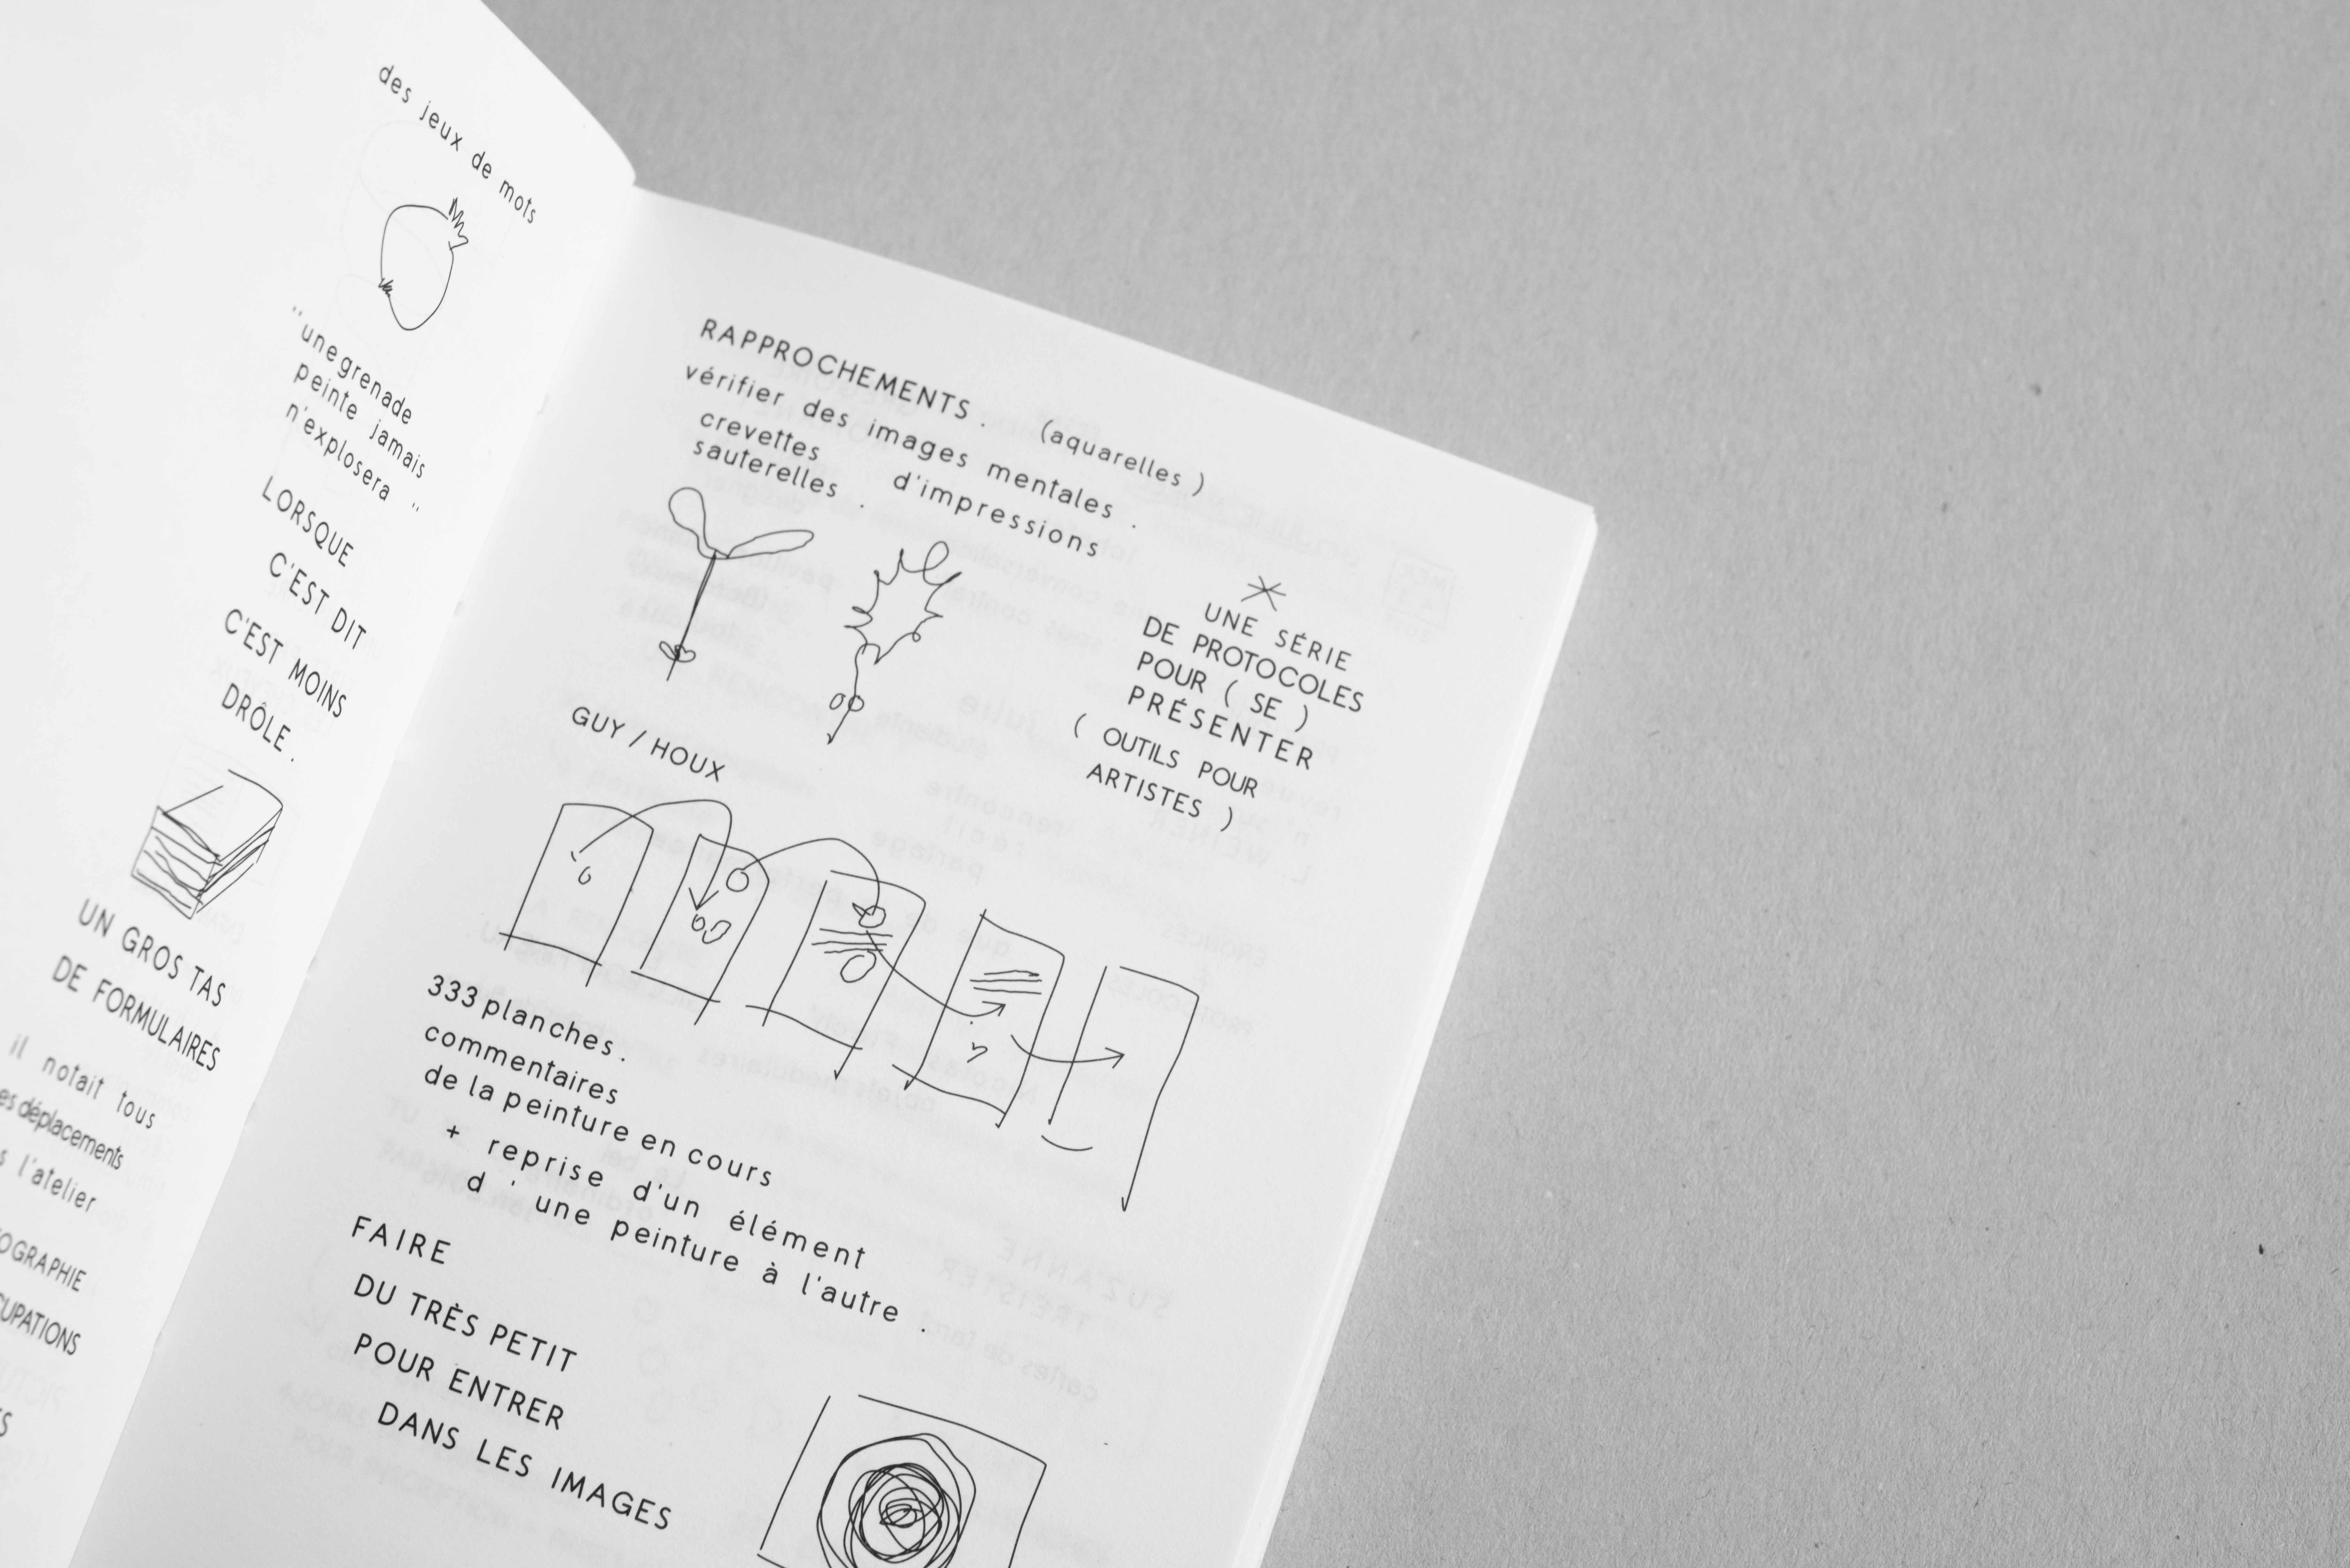 des jeux de mots
"une grenade
peinte jamais
n'explosera "
LORSQUE
C'EST DIT
C'EST MOINS
DRÔLE.
UN GROS TAS
DE FORMULAIRES
il notait tous
déplacements
l'atelier
RAPPROCHEMENTS. (aquarelles)
vérifier des images mentales.
crevettes d'impressions
sauterelles.
UNE SÉRIE
DE PROTOCOLES
POUR ( SE )
PRÉSENTER
( OUTILS POUR
ARTISTES )
GUY / HOUX
333 planches.
commentaires
de la peinture en cours
+ reprise d'un élément
d'une peinture à l'autre.
FAIRE
DU TRÈS PETIT
POUR ENTRER
DANS LES IMAGES